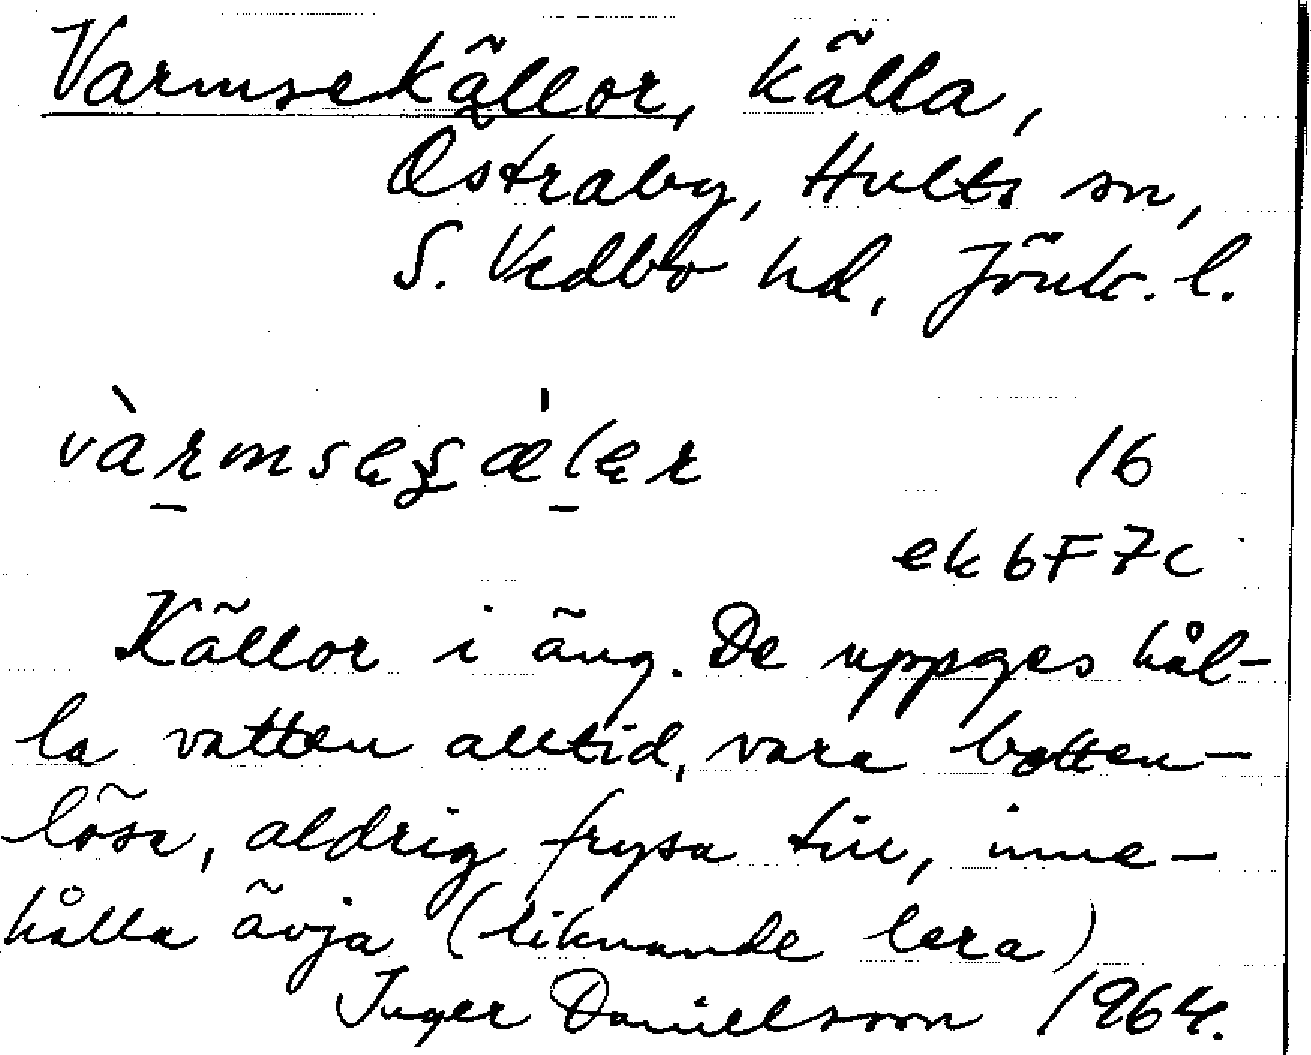 Varmsekällor, källa,
Östraby, Hults sn,
S. Vedbo hd, Jönk. l.
16
ek 6F7c
Källor i äng. De uppges hål-
la vatten alltid, vara botten-
lösa, aldrig frysa till, inne-
hålla ävja (liknande lera)
Inger Danielsson 1964.